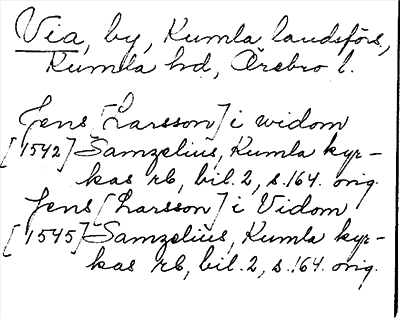 Via, by, Kumla landsförs,
Kumla hd, Örebro l.
Jens [Larsson] i widom
[1542] Samzelius, Kumla kyr-
kas rb, bil. 2, s. 164. orig.
Jens [Larsson] i Vidom
[1545] Samzelius, Kumla kyr-
kas rb, bil. 2, s. 164. orig.